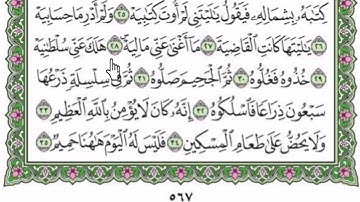 كِتَٰبَهُۥ بِشِمَالِهِۦ فَيَقُولُ يَٰلَيْتَنِى لَمْ أُوتَ كِتَٰبِيَهْ ٢٥ وَلَمْ أَدْرِ مَا حِسَابِيَهْ
٢٦ يَٰلَيْتَهَا كَانَتِ ٱلْقَاضِيَةَ ٢٧ مَآ أَغْنَىٰ عَنِّى مَالِيَهْ ٢٨ هَلَكَ عَنِّى سُلْطَٰنِيَهْ
٢٩ خُذُوهُ فَغُلُّوهُ ٣٠ ثُمَّ ٱلْجَحِيمَ صَلُّوهُ ٣١ ثُمَّ فِى سِلْسِلَةٍ ذَرْعُهَا
سَبْعُونَ ذِرَاعًا فَٱسْلُكُوهُ ٣٢ إِنَّهُۥ كَانَ لَا يُؤْمِنُ بِٱللَّهِ ٱلْعَظِيمِ ٣٣
وَلَا يَحُضُّ عَلَىٰ طَعَامِ ٱلْمِسْكِينِ ٣٤ فَلَيْسَ لَهُ ٱلْيَوْمَ هَٰهُنَا حَمِيمٌ ٣٥
٥٦٧